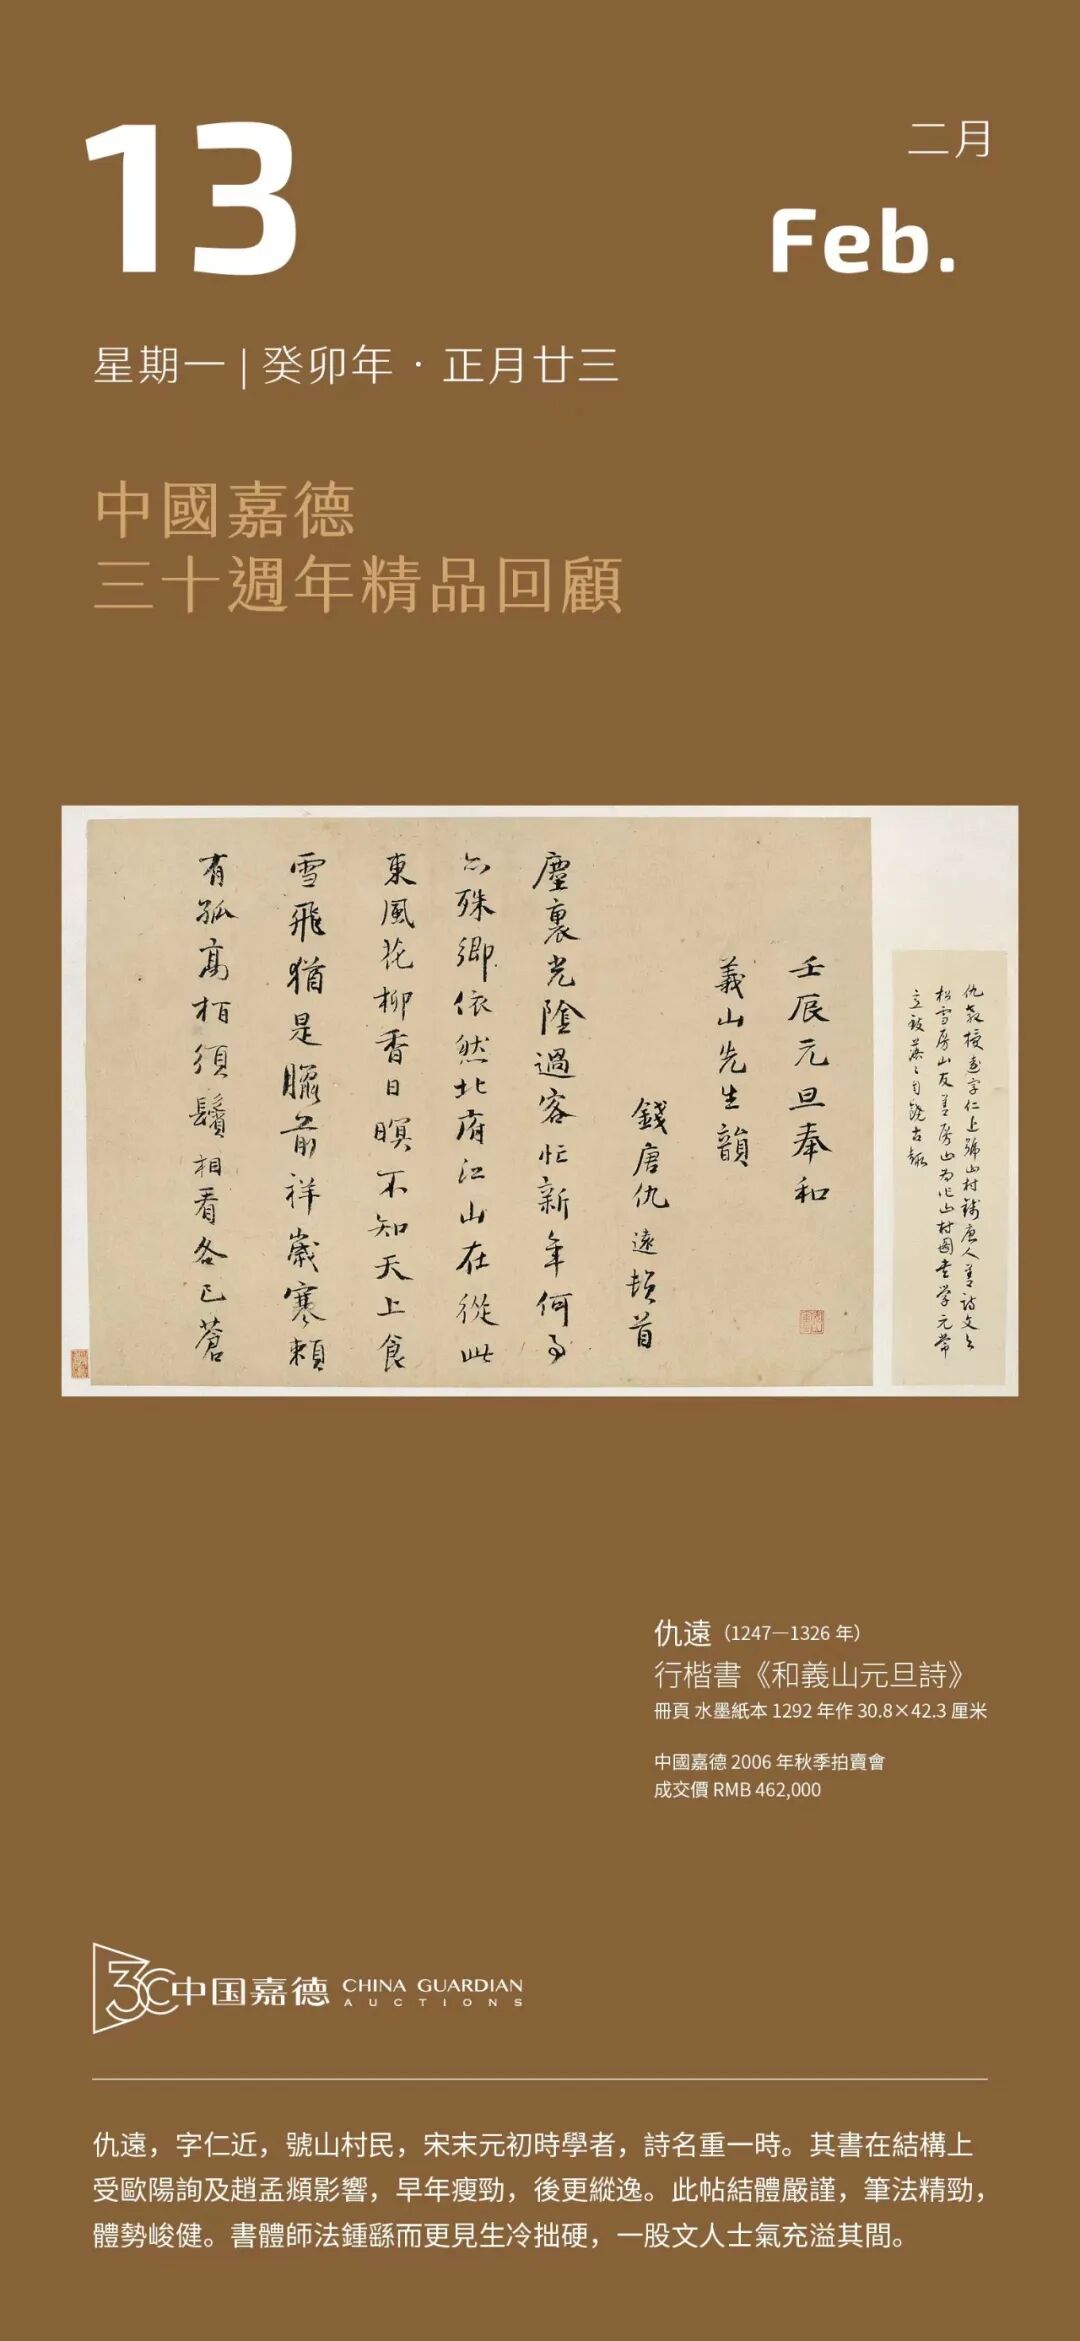 13
二月
Feb.
星期一 | 癸卯年 · 正月廿三
中國嘉德
三十週年精品回顧
仇教授遠字仁近號山村錢唐人善詩文与
松雪房山友善房山為作山村圖書學元常
立致落落自饒古趣
壬辰元旦奉和
義山先生韻
錢唐仇遠頓首
塵裏光陰過客忙新年何事
亦殊鄉依然北府江山在從此
東風花柳香日暝不知天上食
雪飛猶是臘前祥歲寒賴
有孤高栢須鬢相看各已蒼
仇遠（1247—1326 年）
行楷書《和義山元旦詩》
冊頁 水墨紙本 1292 年作 30.8×42.3 厘米
中國嘉德 2006 年秋季拍賣會
成交價 RMB 462,000
30 中国嘉德 CHINA GUARDIAN
AUCTIONS
仇遠，字仁近，號山村民，宋末元初時學者，詩名重一時。其書在結構上
受歐陽詢及趙孟頫影響，早年瘦勁，後更縱逸。此帖結體嚴謹，筆法精勁，
體勢峻健。書體師法鍾繇而更見生冷拙硬，一股文人士氣充溢其間。